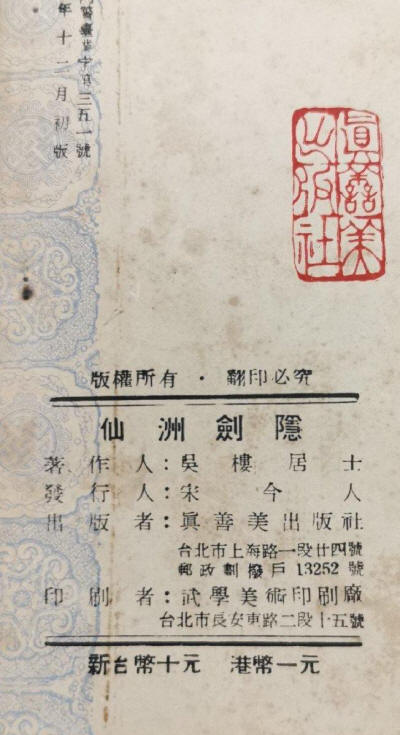 警臺業字第三五一號
年十一月初版
眞善美
出版社
版權所有・翻印必究
仙洲劍隱
著作人：吳樓居士
發行人：宋今人
出版者：眞善美出版社
台北市上海路一段廿四號
郵政劃撥戶13252號
印刷者：武學美術印刷廠
台北市長安東路二段十五號
新台幣十元 港幣一元